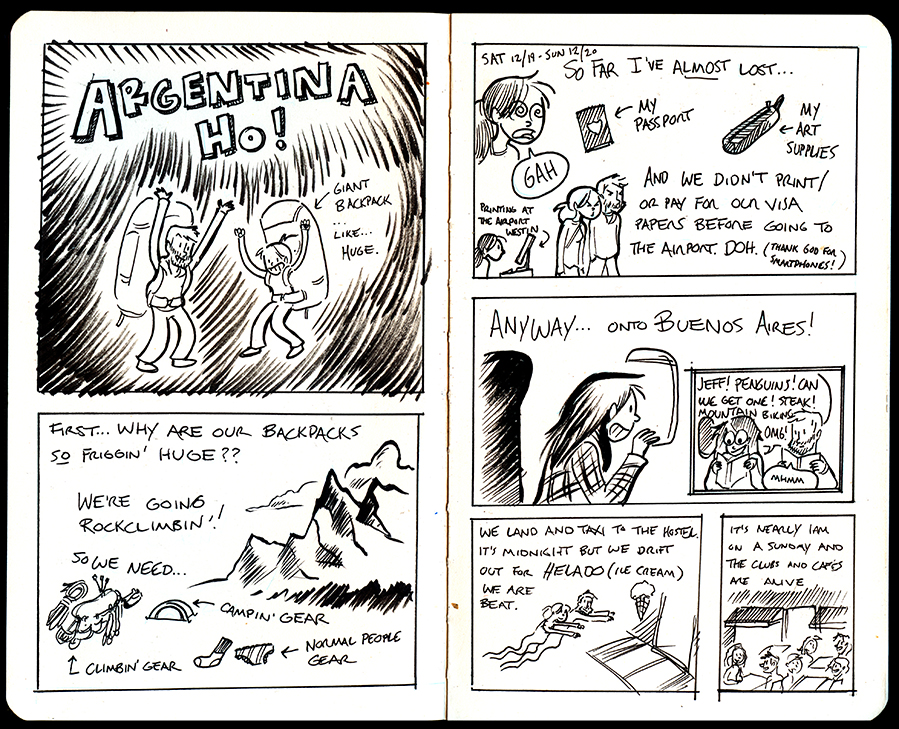 ARGENTINA
HO!
GIANT
BACKPACK
...
LIKE...
HUGE.
FIRST... WHY ARE OUR BACKPACKS
SO FRIGGIN' HUGE??
WE'RE GOING
ROCKCLIMBIN'!
SO WE NEED...
CAMPIN' GEAR
CLIMBIN' GEAR
NORMAL PEOPLE
GEAR
SAT 12/19 - SUN 12/20
SO FAR I'VE ALMOST LOST...
MY
PASSPORT
MY
ART
SUPPLIES
GAH
PRINTING AT
THE AIRPORT
WESTIN
AND WE DIDN'T PRINT/
OR PAY FOR OUR VISA
PAPERS BEFORE GOING TO
THE AIRPORT. DOH. (THANK GOD FOR
SMARTPHONES!)
ANYWAY... ONTO BUENOS AIRES!
JEFF! PENGUINS! CAN
WE GET ONE! STEAK!
MOUNTAIN BIKING
OMG!
MHMM
WE LAND AND TAXI TO THE HOSTEL.
IT'S MIDNIGHT BUT WE DRIFT
OUT FOR HELADO (ICE CREAM)
WE ARE
BEAT.
IT'S NEARLY 1AM
ON A SUNDAY AND
THE CLUBS AND CAFÉS
ARE ALIVE